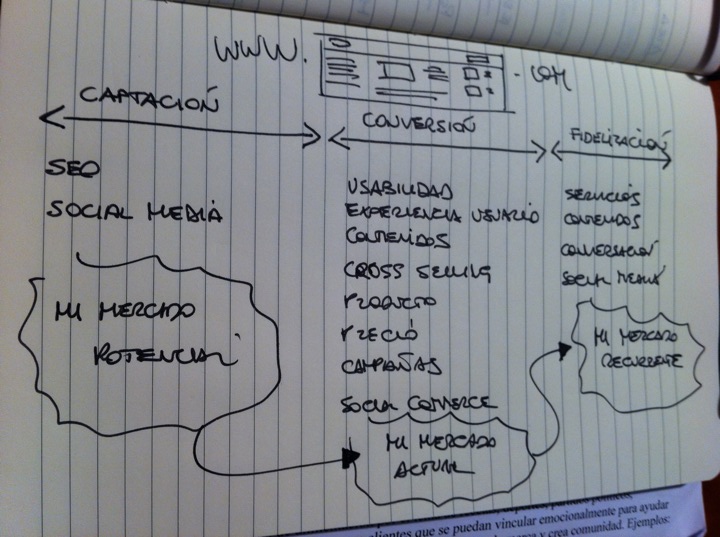 WWW.
.COM
CAPTACIÓN
SEO
SOCIAL MEDIA
MI MERCADO
POTENCIAL
CONVERSIÓN
USABILIDAD
EXPERIENCIA USUARIO
CONTENIDOS
CROSS SELLING
PRODUCTO
PRECIO
CAMPAÑAS
SOCIAL COMMERCE
MI MERCADO
ACTUAL
FIDELIZACIÓN
SERVICIOS
CONTENIDOS
CONVERSACIÓN
SOCIAL MEDIA
MI MERCADO
RECURRENTE
partidos políticos,
clientes que se puedan vincular emocionalmente para ayudar
y crea comunidad. Ejemplos: